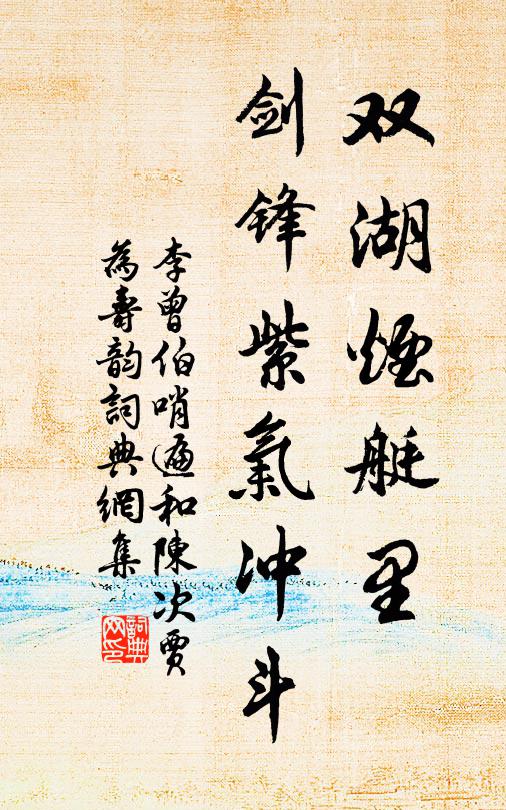 双湖烟艇里
剑锋紫氣冲斗
李曾伯哨遍和陳次賈
為壽韵詞典網集
詞典网印